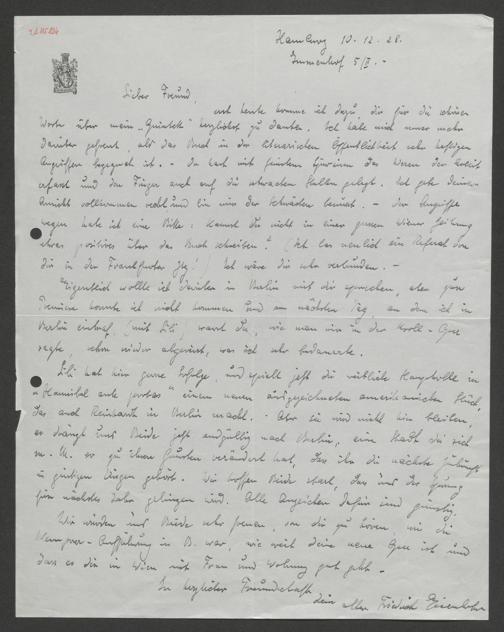 Hamburg 10.12.28.
Immenhof 5/II. -
Lieber Freund,
erst heute komme ich dazu, dir für die schönen
Worte über mein "Quintett" herzlichst zu danken. Ich habe mich umso mehr
darüber gefreut, als das Buch in der literarischen Öffentlichkeit sehr heftigen
Angriffen begegnet ist. - Du hast mit feinstem das Wesen der Arbeit
erfasst und den Finger auch auf die schwachen Stellen gelegt. Ich gebe deiner
Ansicht vollkommen recht und bin mir der Schwächen bewusst. - Der Angriffe
wegen hab ich eine Bitte: kannst du nicht in einer grossen Wiener Zeitung
etwas positives über das Buch schreiben? (Ich las neulich ein Referat von
dir in der Frankfurter Ztg!) Ich wäre dir sehr verbunden. -
Eigentlich wollte ich darüber in Berlin mit dir sprechen, aber zur
Première konnte ich nicht kommen und am nächsten Tag, an dem ich in
Berlin eintraf (mit Lili) warst du, wie man mir in der Kroll-Oper
sagte, schon wieder abgereist, was ich sehr bedauerte.
Lili hat hier gute Erfolge, und spielt jetzt die weibliche Hauptrolle in
"Hannibal ante portas" einem neuen ausgezeichneten amerikanischen Stück,
das auch Reinhardt in Berlin macht. - Aber sie wird nicht hier bleiben,
es drängt uns Beide jetzt endgültig nach Berlin, eine Stadt die sich
m. M. so zu ihren Gunsten verändert hat, dass ihr die nächste Zukunft
in geistigen Dingen gehört. Wir hoffen Beide stark, dass uns der Sprung
fürs nächste Jahr gelingen wird. Alle Anzeichen dafür sind günstig.
Wir würden uns Beide sehr freuen, von dir zu hören, wie die
Aufführung in B. war, wie weit deine neue Oper ist und
dass es dir in Wien mit Frau und Wohnung gut geht. -
In herzlicher Freundschaft
dein alter Friedrich Eisenlohr